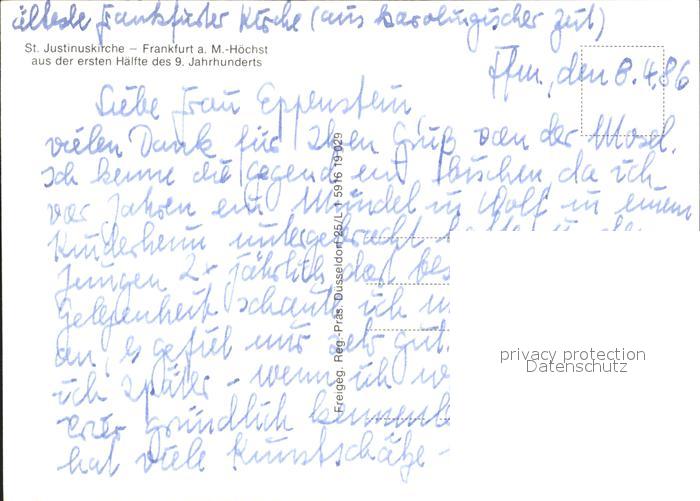 älteste Frankfurter Kirche (aus karolingischer Zeit)
St. Justinuskirche – Frankfurt a. M.-Höchst
aus der ersten Hälfte des 9. Jahrhunderts
Ffm, den 8.4.86
Liebe Frau Eppenstein,
vielen Dank für Ihren Gruß von der Mosel.
Ich kenne die Gegend ein bischen da ich
vor Jahren ein Mündel in Wolf in einem
Kinderheim untergebracht
Jungen 2x jährlich dort bes
Gelegenheit schaute ich
an, es gefiel mir sehr gut.
ich später - wenn ich
gründlich kennen
hat viele Kunstschätze -
Freigeg. Reg.-Präs. Düsseldorf 25/L 1 5916 19 029
privacy protection
Datenschutz